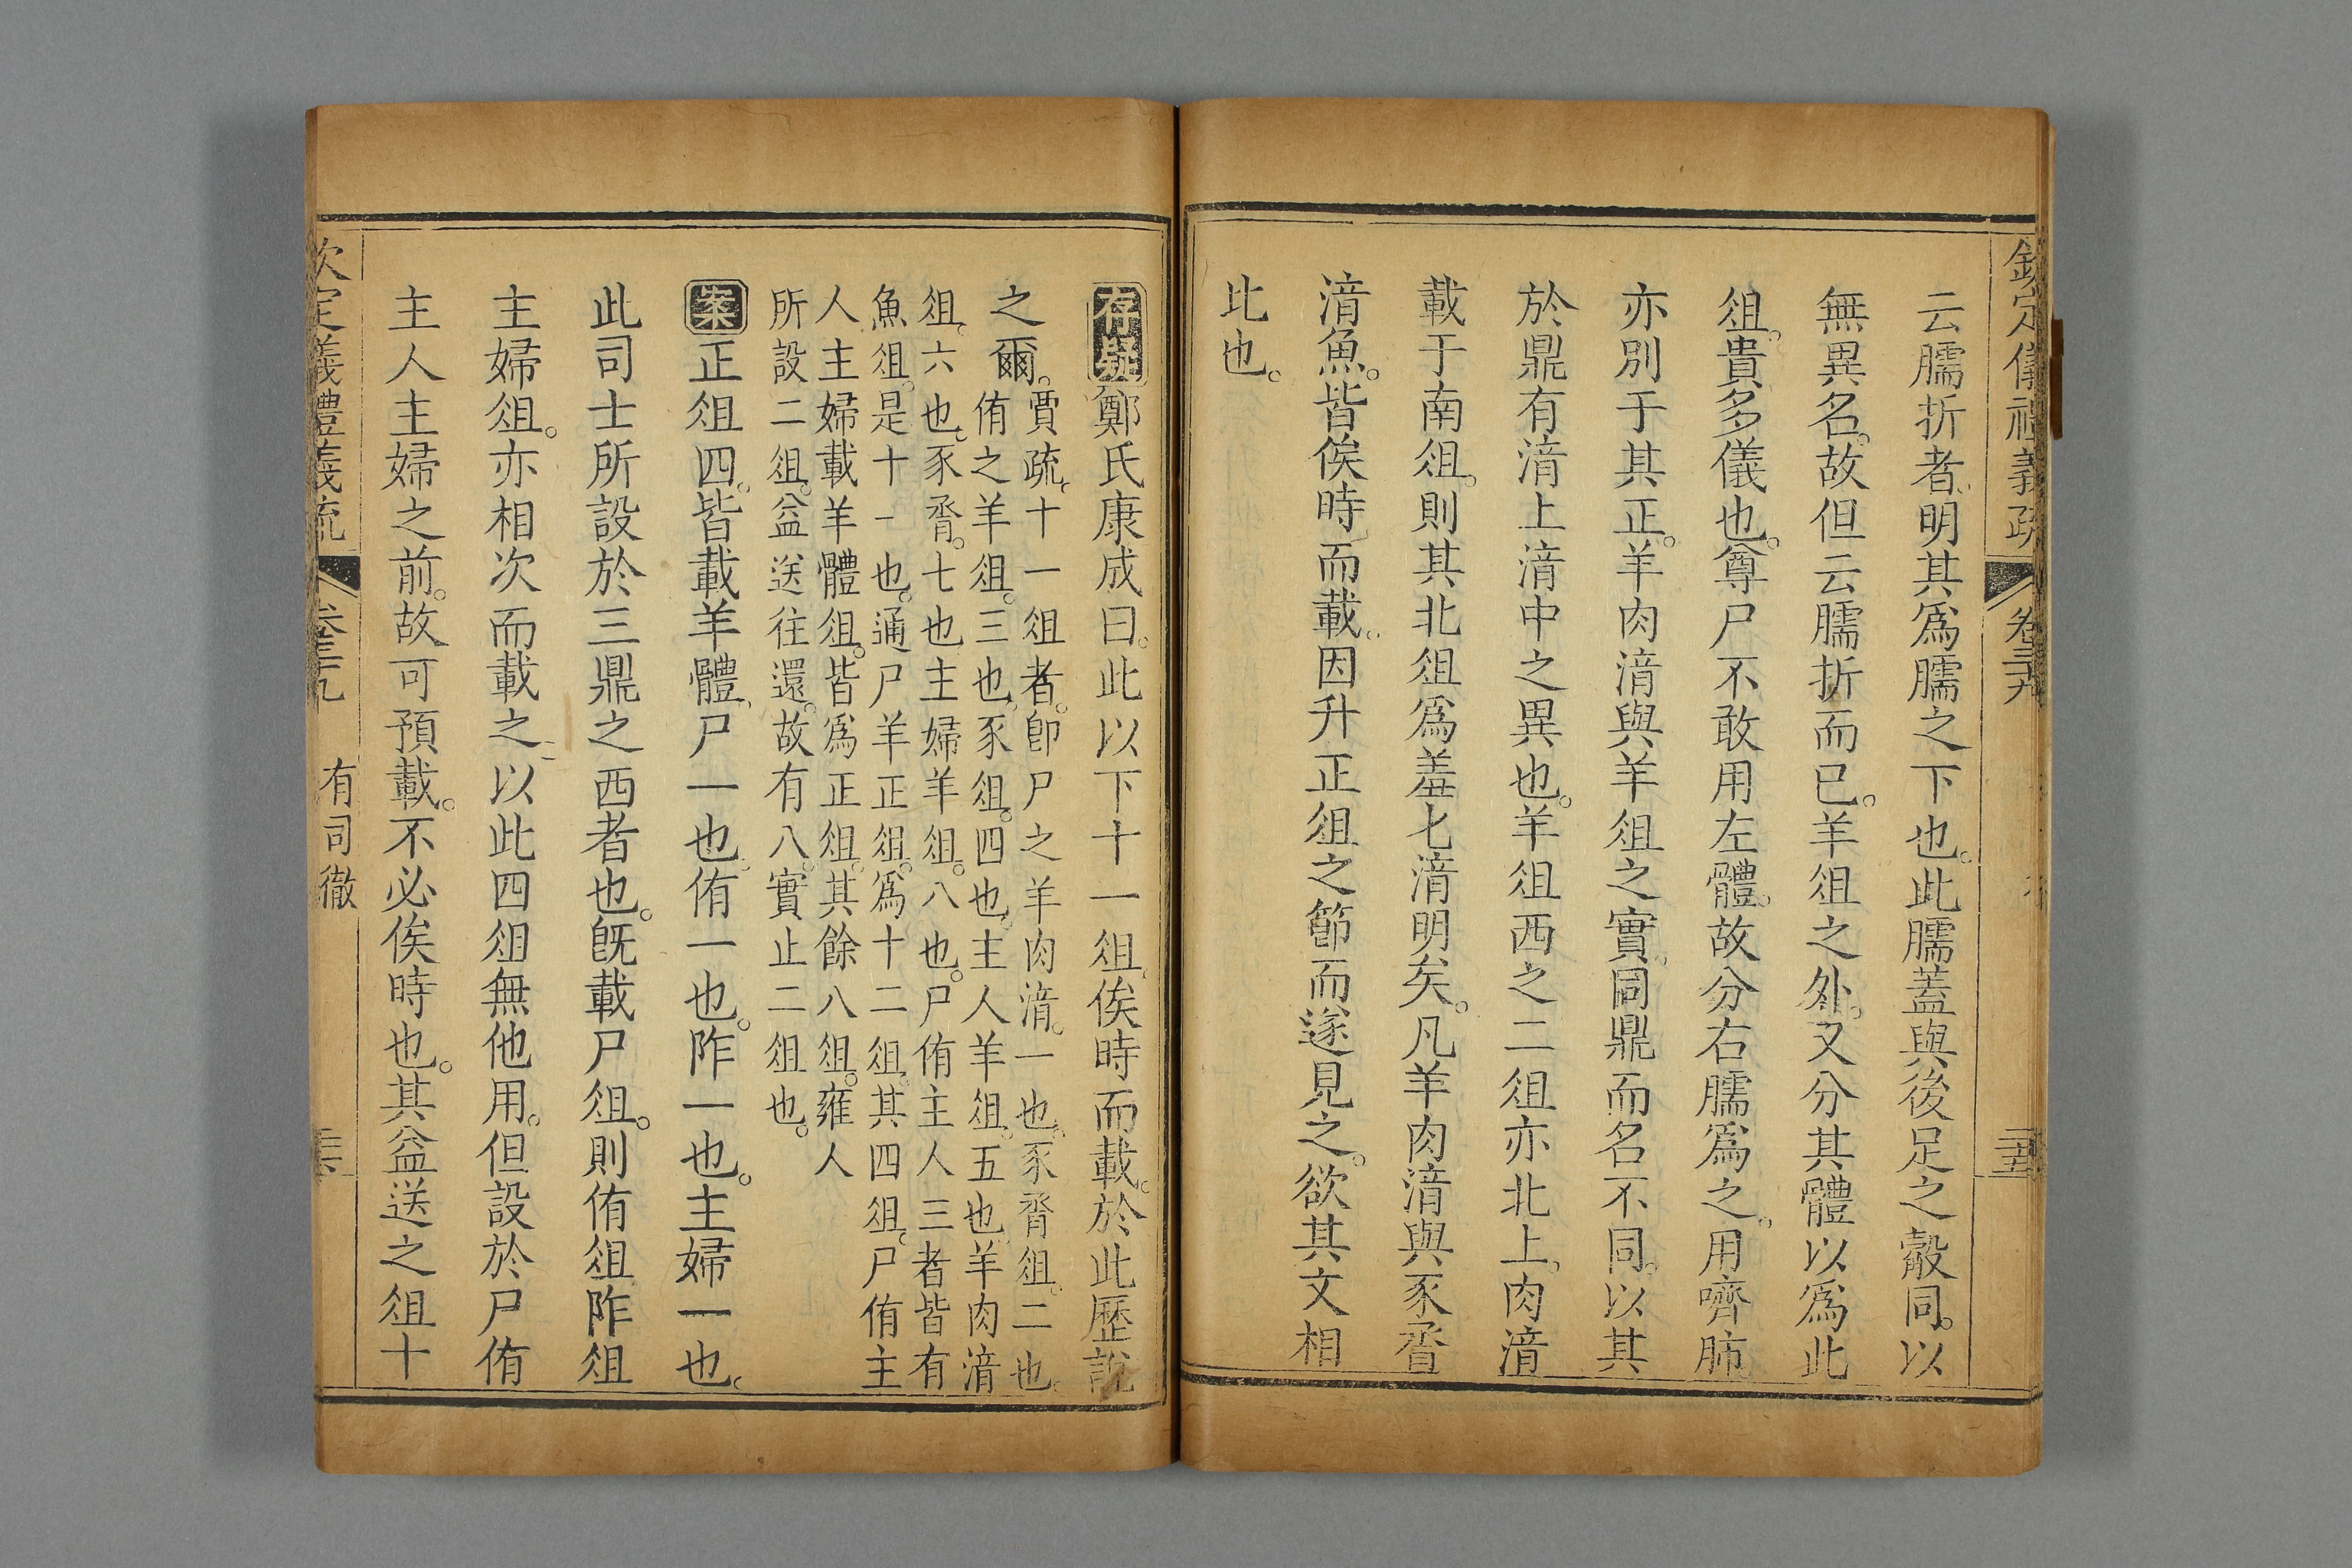 欽定儀禮義疏 卷三十九 三五
云臑折者明其爲臑之下也。此臑蓋與後足之觳同。以
無異名。故但云臑折而已。羊俎之外。又分其體以爲此
俎。貴多儀也。尊尸不敢用左體。故分右臑爲之。用嚌肺
亦別于其正。羊肉湇與羊俎之實。同鼎而名不同。以其
於鼎有湇上湇中之異也。羊俎西之二俎亦北上。肉湇
載于南俎。則其北俎爲羞匕湇明矣。凡羊肉湇與豕脀
湇魚。皆俟時而載。因升正俎之節而遂見之。欲其文相
比也。
存疑鄭氏康成曰。此以下十一俎。俟時而載。於此歷說
之爾。賈疏。十一俎者。卽尸之羊肉湇。一也。豕脀俎。二也。
侑之羊俎。三也。豕俎。四也。主人羊俎。五也。羊肉湇
俎。六也。豕脀。七也。主婦羊俎。八也。尸侑主人三者皆有
魚俎。是十一也。通尸羊正俎。爲十二俎。其四俎。尸侑主
人主婦載羊體俎。皆爲正俎。其餘八俎。雍人
所設二俎。益送往還。故有八。實止二俎也。
案正俎四。皆載羊體。尸一也。侑一也。阼一也。主婦一也。
此司士所設於三鼎之西者也。旣載尸俎。則侑俎阼俎
主婦俎。亦相次而載之。以此四俎無他用。但設於尸侑
主人主婦之前。故可預載。不必俟時也。其益送之俎十
欽定儀禮義疏 卷三十九 有司徹